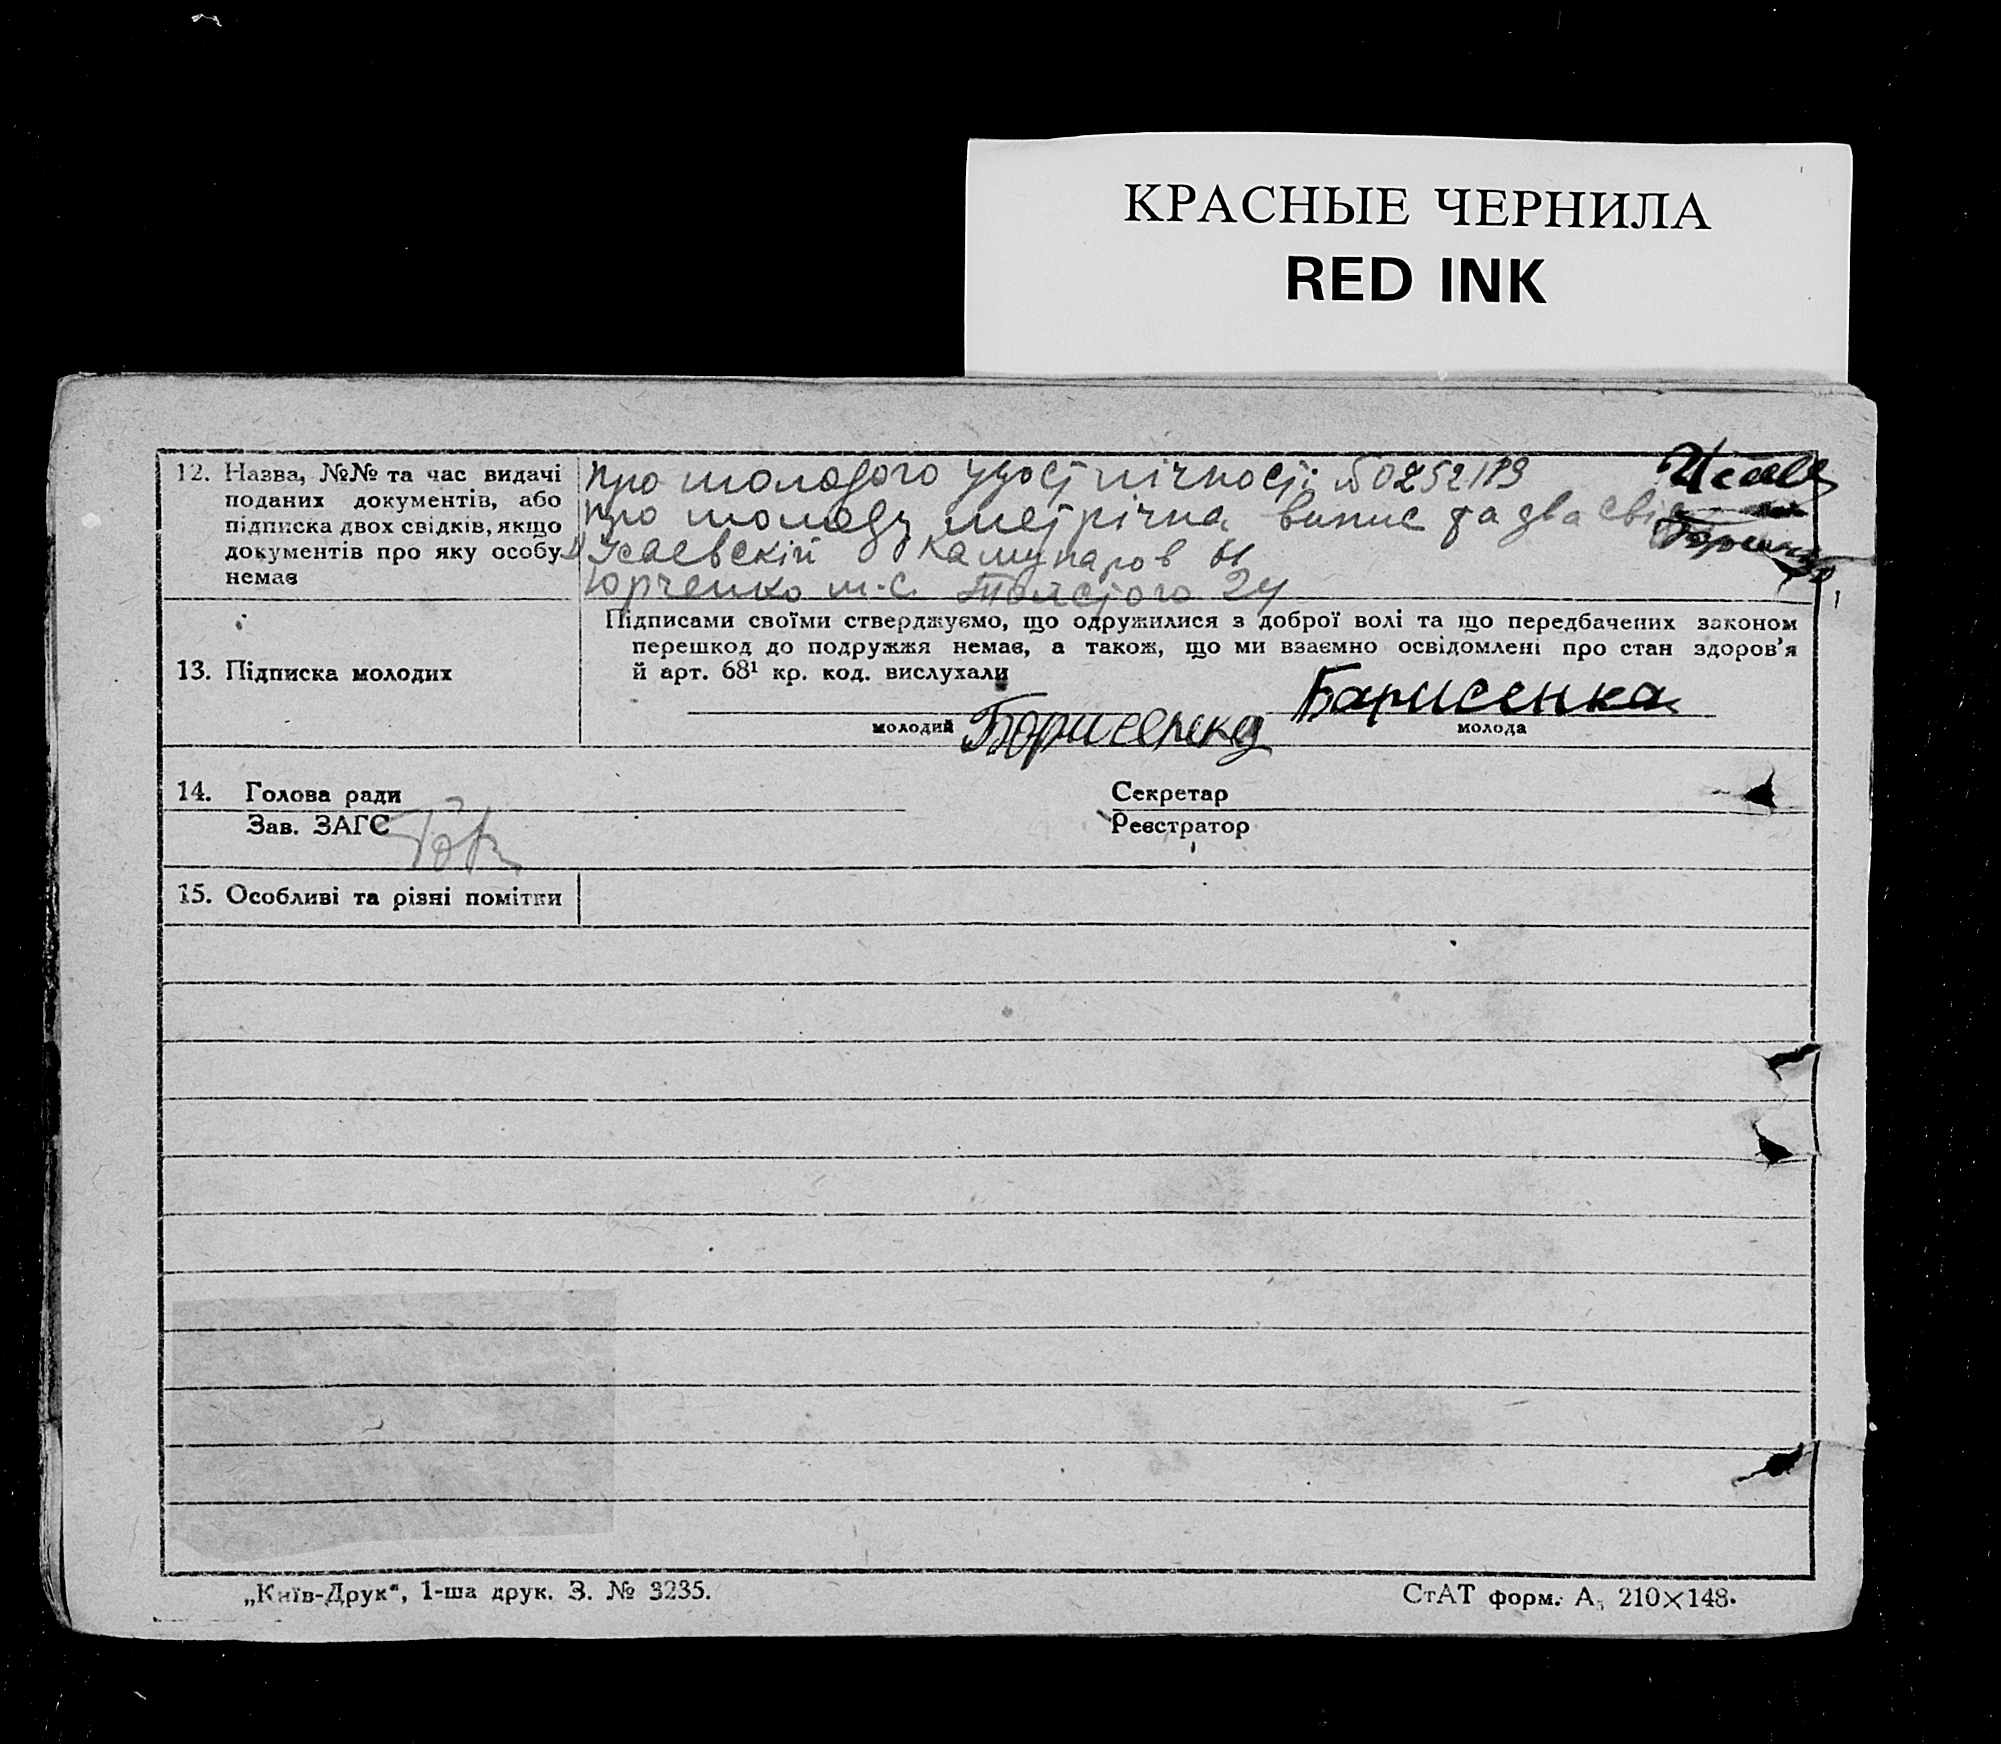 КРАСНЫЕ ЧЕРНИЛА
RED INK
12. Назва, №№ та час видачі
поданих документів, або
підписка двох свідків, якщо
документів про яку особу
немає
про молодого удост лічности №0252119
про молоду метрічна випис та два свід
Ісаевскій Камунаров
Юрченко м.с. Толстого 24
13. Підписка молодих
Підписами своїми стверджуємо, що одружилися з доброї волі та що передбачених законом
перешкод до подружжя немає, а також, що ми взаємно освідомлені про стан здоров'я
й арт. 68¹ кр. код. вислухали
Барисенка
молодий Борисенко молода
14. Голова ради Секретар
Зав. ЗАГС Реєстратор
15. Особливі та різні помітки
„Київ-Друк“, 1-ша друк. З. № 3235.
СтАТ форм. А₅ 210×148.